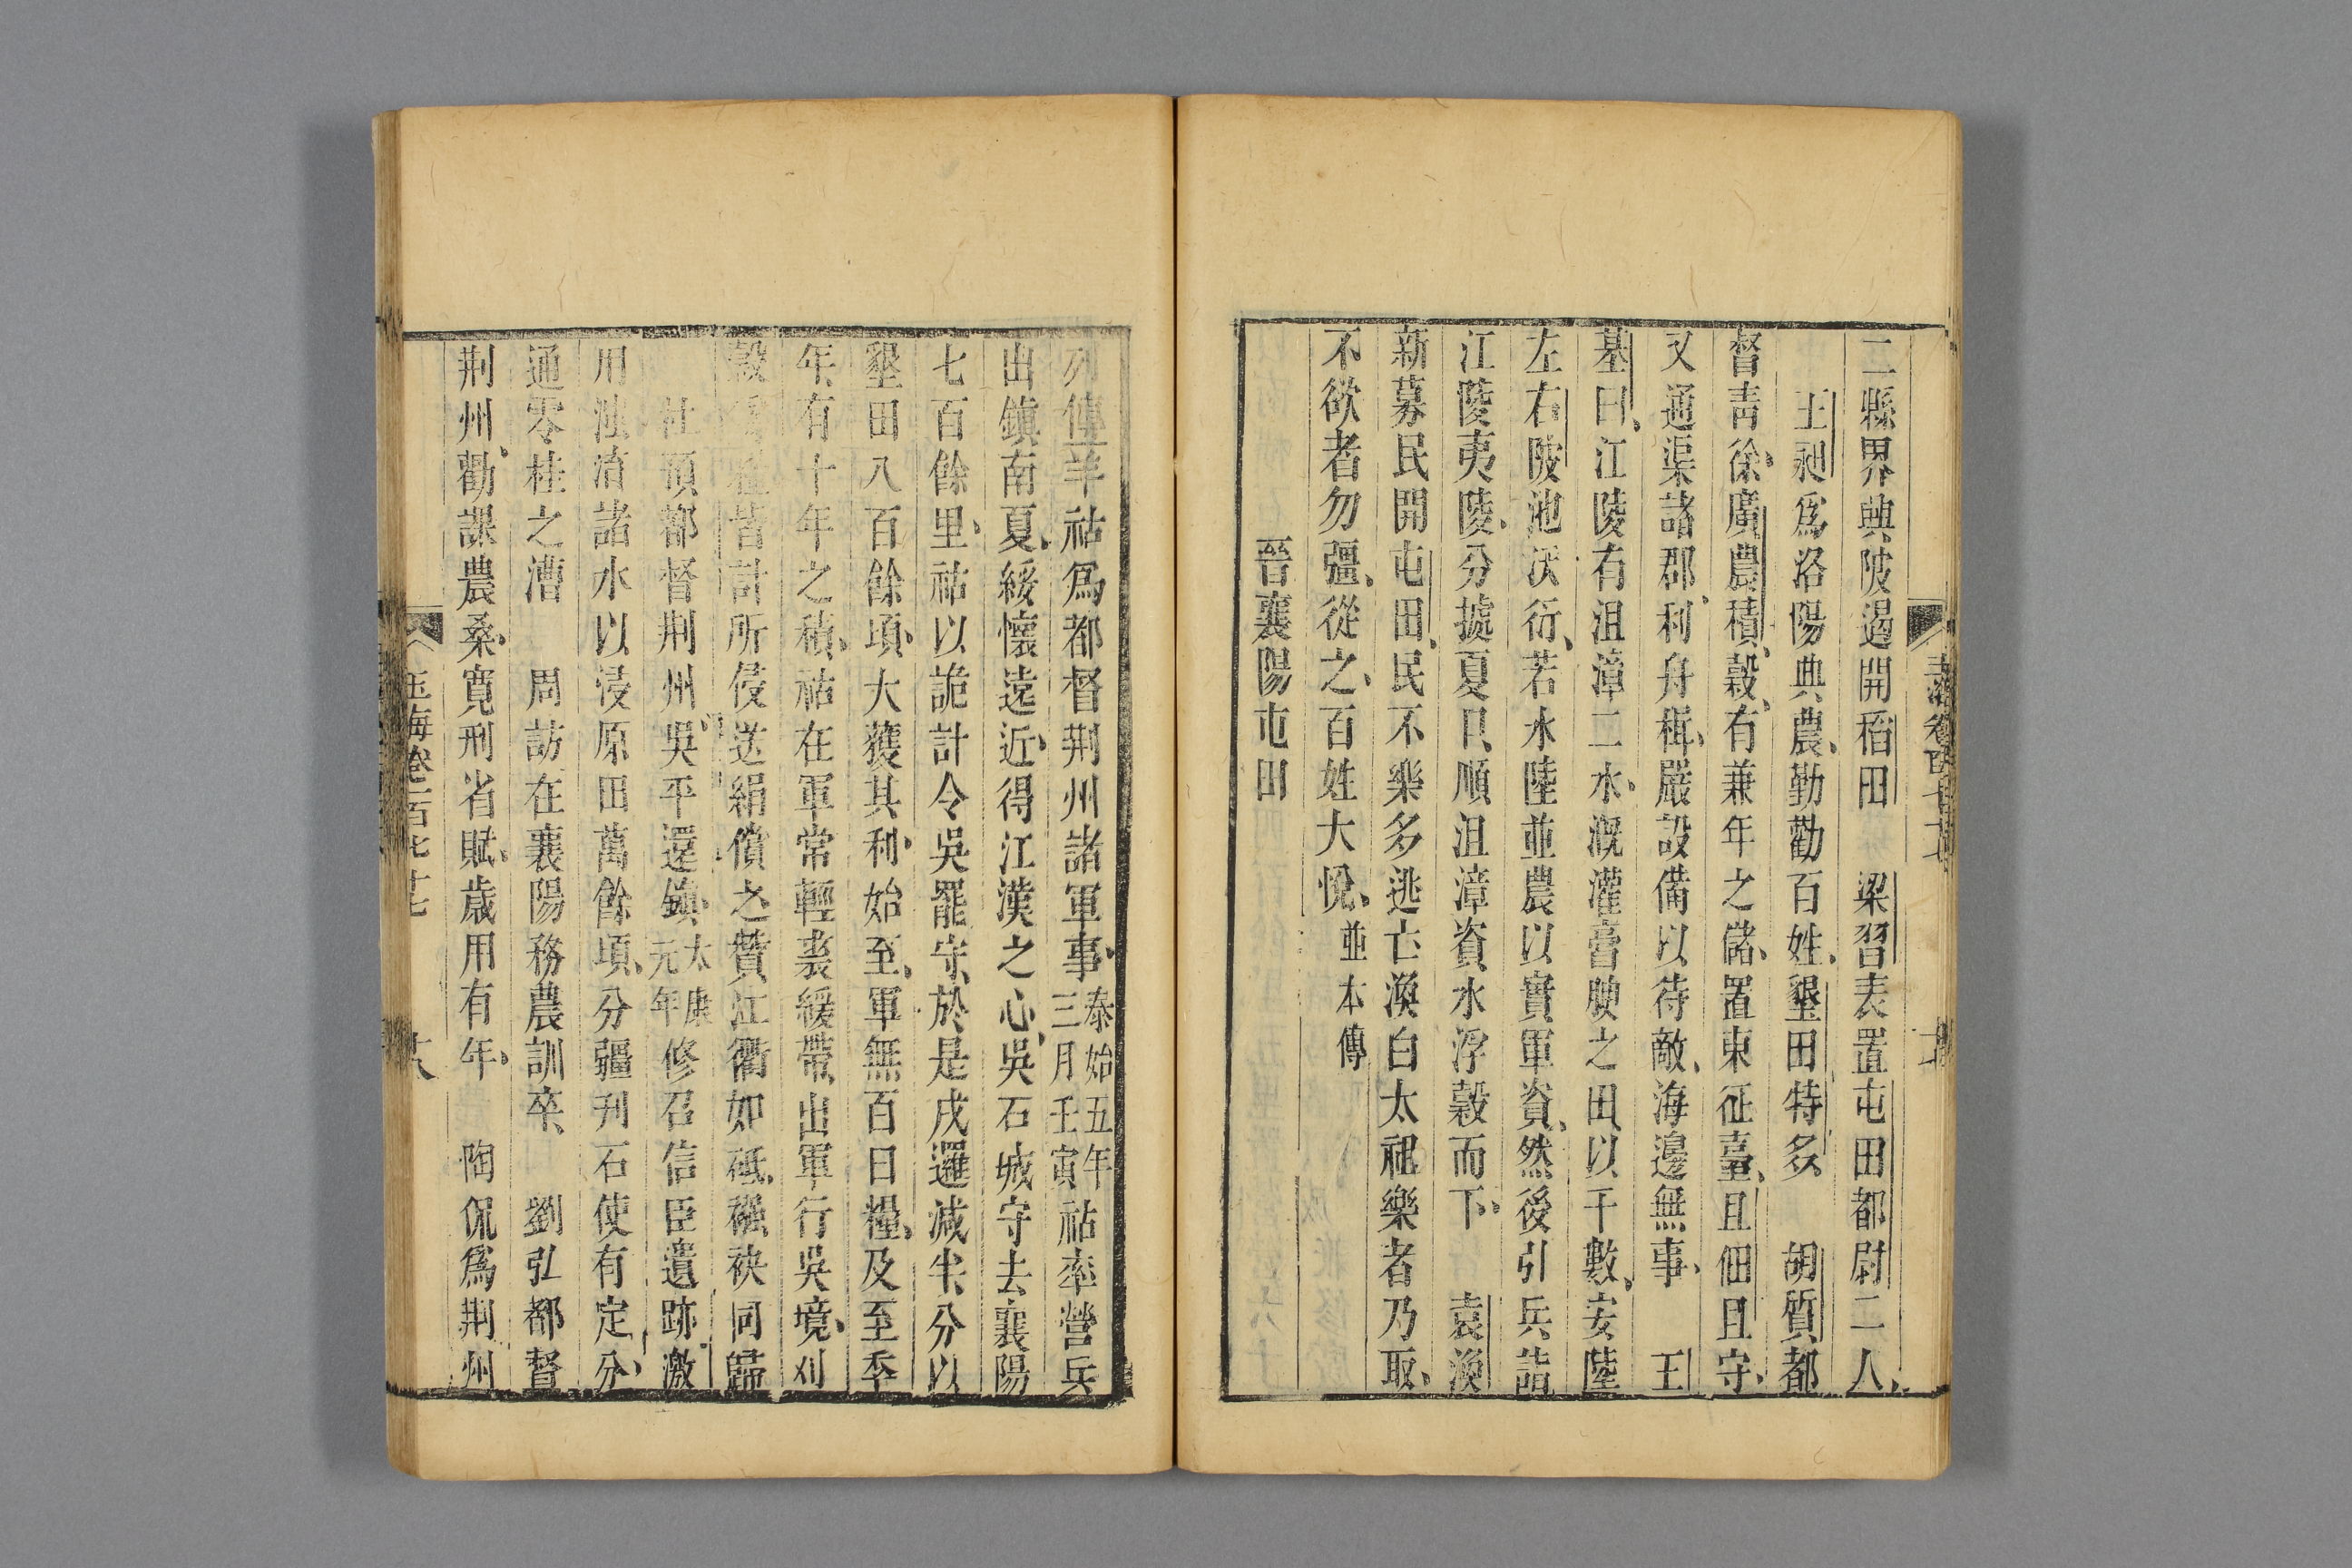 二縣界興陂遏開稻田　梁習表置屯田都尉二人
王昶爲洛陽典農勤勸百姓墾田特多　胡質都
督靑徐廣農積穀有兼年之儲置東征臺且佃且守
又通渠諸郡利舟楫嚴設備以待敵海邊無事　王
基曰江陵有沮漳二水漑灌膏腴之田以千數安陸
左右陂池沃衍若水陸並農以實軍資然後引兵詣
江陵夷陵分據夏口順沮漳資水浮穀而下　袁渙
新募民開屯田民不樂多逃亡渙白太祖樂者乃取
不欲者勿彊從之百姓大悅並本傳
晉襄陽屯田
列傳羊祜爲都督荆州諸軍事泰始五年三月壬寅祜率營兵
出鎮南夏綏懷遠近得江漢之心吳石城守去襄陽
七百餘里祜以詭計令吳罷守於是戍邏減半分以
墾田八百餘頃大獲其利始至軍無百日糧及至季
年有十年之積祜在軍常輕裘緩帶出軍行吳境刈
穀爲糧皆計所侵送絹償之贊江衢如砥襁袂同歸
杜預都督荆州吳平還鎮太康元年修召信臣遺跡激
用滍淯諸水以浸原田萬餘頃分疆刊石使有定分
通零桂之漕　周訪在襄陽務農訓卒　劉弘都督
荆州勸課農桑寬刑省賦歲用有年　陶侃爲荆州
玉海卷一百七十七
十八